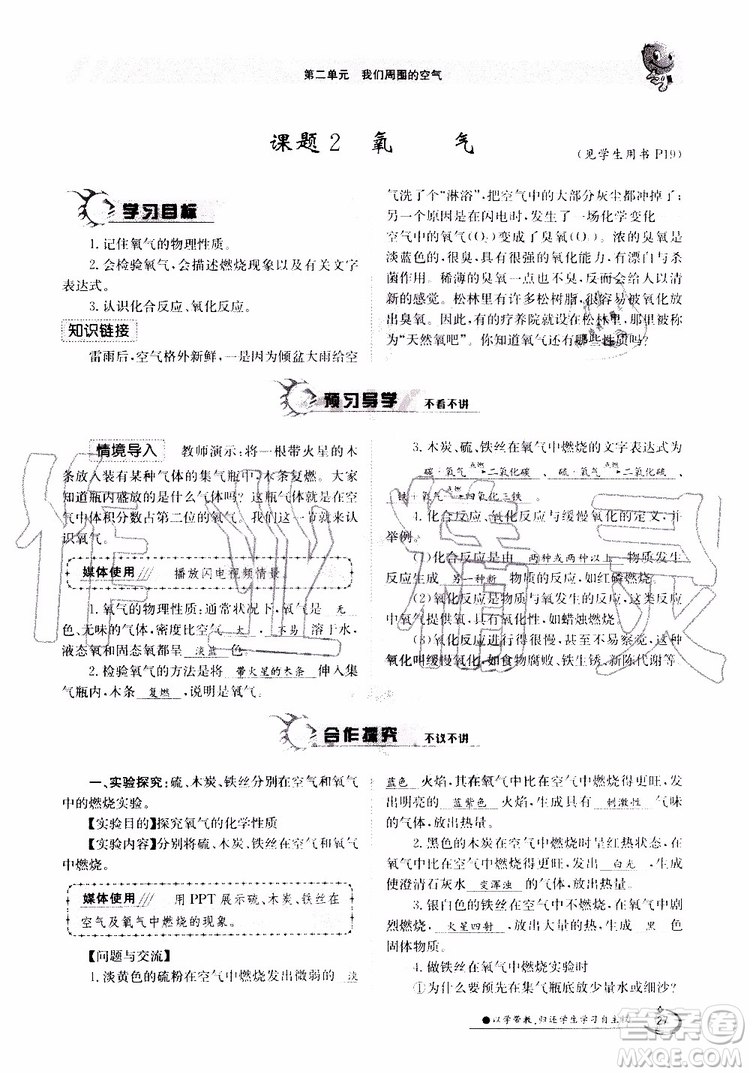 第二单元 我们周围的空气
课题2 氧 气
(见学生用书 P19)
学习目标
1.记住氧气的物理性质。
2.会检验氧气，会描述燃烧现象以及有关文字
表达式。
3.认识化合反应、氧化反应。
知识链接
雷雨后，空气格外新鲜，一是因为倾盆大雨给空
气洗了个“淋浴”，把空气中的大部分灰尘都冲掉了；
另一个原因是在闪电时，发生了一场化学变化——
空气中的氧气(O₂)变成了臭氧(O₃)。浓的臭氧是
淡蓝色的，很臭，具有很强的氧化能力，能漂白与杀
菌作用。稀薄的臭氧一点也不臭，相反能给人以清
新的感觉。松林里有许多松树脂，很容易被氧化放
出臭氧。有的疗养院就设在松林里，常被人们称为
“天然氧吧”。你知道氧气还有哪些性质吗？
预习导学 不看不讲
情境导入 教师演示：将一根带火星的木
条放入装有某种气体的集气瓶中，木条复燃。大家
知道瓶内盛放的是什么气体吗？这瓶气体就是在空
气中体积分数占第二位的氧气。我们这一节就来认
识氧气。
媒体使用/// 播放闪电视频情景
1.氧气的物理性质：通常状况下，氧气是 无
色、无味的气体，密度比空气 大 ， 不易 溶于水，
液态氧和固态氧都是 淡蓝 色。
2.检验氧气的方法是将 带火星的木条 伸入集
气瓶内，木条 复燃 ，说明是氧气。
3.木炭、硫、铁丝在氧气中燃烧的文字表达式为
碳+氧气 点燃→ 二氧化碳 、 硫+氧气 点燃→ 二氧化硫 、
铁+氧气 点燃→ 四氧化三铁 。
4.化合反应、氧化反应与缓慢氧化的含义，并
举例。
(1)化合反应是由 两种或两种以上 物质发生
反应，生成 另一种新 物质的反应，如红磷燃烧。
(2)氧化反应是物质与氧发生的反应，这类反应
中氧气提供氧，具有氧化性，如蜡烛燃烧。
(3)氧化反应进行得很慢，甚至不易察觉，这种
氧化叫缓慢氧化，如食物腐败、铁生锈、新陈代谢等。
合作探究 不议不讲
一、实验探究：硫、木炭、铁丝分别在空气和氧气
中的燃烧实验。
【实验目的】探究氧气的化学性质
【实验内容】分别将硫、木炭、铁丝在空气和氧气
中燃烧。
媒体使用/// 用PPT展示硫、木炭、铁丝在
空气及氧气中燃烧的现象。
【问题与交流】
1.淡黄色的硫粉在空气中燃烧发出微弱的 淡
蓝色 火焰，其在氧气中燃烧比空气中燃烧得更旺，发
出明亮的 蓝紫色 火焰，生成有 刺激性 气味
的气体，放出热量。
2.黑色的木炭在空气中燃烧时呈红热状态，在
氧气中燃烧得更旺，发出 白光 ，放出热量，生成
使澄清石灰水 变浑浊 的气体。
3.银白色的铁丝在空气中不燃烧，在氧气中剧
烈燃烧， 火星四射 ，放出大量的热，生成 黑 色
固体物质。
4.做铁丝在氧气中燃烧实验时
①为什么要预先在集气瓶底放些水或细沙？
●以学带教，归还学生学习自主权
27
作业精灵
答案圈
MXQE.COM